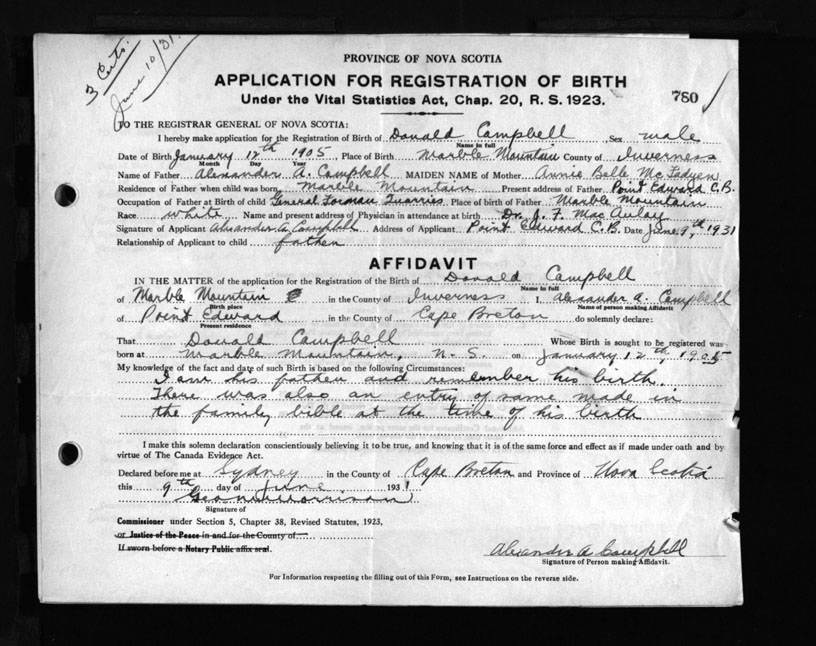 3 Certs.
June 10/31.
PROVINCE OF NOVA SCOTIA
APPLICATION FOR REGISTRATION OF BIRTH
Under the Vital Statistics Act, Chap. 20, R. S. 1923.
780
TO THE REGISTRAR GENERAL OF NOVA SCOTIA:
I hereby make application for the Registration of Birth of Donald Campbell Sex male
Name in full
Date of Birth January 12th 1905, Place of Birth Marble Mountain County of Inverness
Month Day Year
Name of Father Alexander A. Campbell MAIDEN NAME of Mother Annie Belle McFadyen
Residence of Father when child was born Marble Mountain Present address of Father Point Edward C.B.
Occupation of Father at Birth of child General Forman Quarries Place of birth of Father Marble Mountain
Race white Name and present address of Physician in attendance at birth Dr. J. F. MacAulay
Signature of Applicant Alexander A. Campbell Address of Applicant Point Edward C.B. Date June 9th, 1931
Relationship of Applicant to child father
AFFIDAVIT
IN THE MATTER of the application for the Registration of the Birth of Donald Campbell
Name in full
of Marble Mountain in the County of Inverness I, Alexander A. Campbell
Birth place Name of person making Affidavit
of Point Edward in the County of Cape Breton do solemnly declare:
Present residence
That Donald Campbell Whose Birth is sought to be registered was
born at Marble Mountain, N. S. on January 12th, 1905
My knowledge of the fact and date of such Birth is based on the following Circumstances:
I am his father and remember his birth.
There was also an entry of same made in
the family bible at the time of his birth
I make this solemn declaration conscientiously believing it to be true, and knowing that it is of the same force and effect as if made under oath and by
virtue of The Canada Evidence Act.
Declared before me at Sydney in the County of Cape Breton and Province of Nova Scotia
this 9th day of June 1931
Morrison
Signature of
Commissioner under Section 5, Chapter 38, Revised Statutes, 1923,
or Justice of the Peace in and for the County of
If sworn before a Notary Public affix seal.
Alexander A Campbell
Signature of Person making Affidavit.
For Information respecting the filling out of this Form, see Instructions on the reverse side.